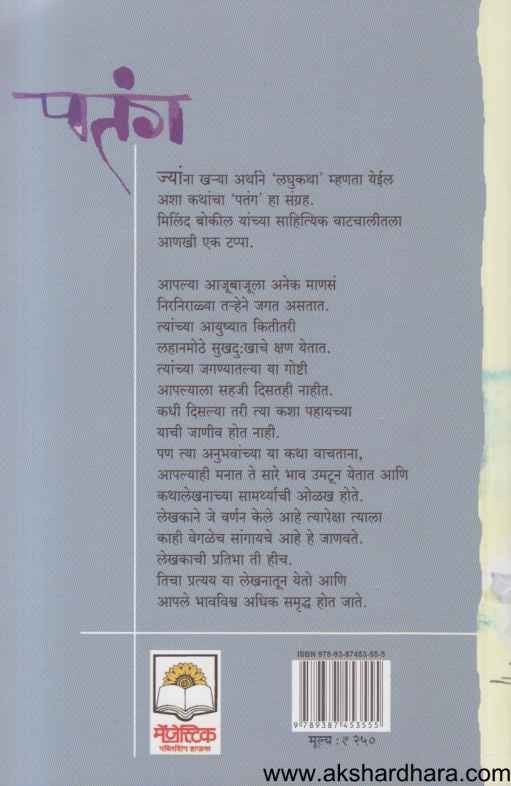 पतंग
ज्यांना खऱ्या अर्थाने ‘लघुकथा’ म्हणता येईल
अशा कथांचा ‘पतंग’ हा संग्रह.
मिलिंद बोकील यांच्या साहित्यिक वाटचालीतला
आणखी एक टप्पा.
आपल्या आजूबाजूला अनेक माणसं
निरनिराळ्या तऱ्हेने जगत असतात.
त्यांच्या आयुष्यात कितीतरी
लहानमोठे सुखदु:खाचे क्षण येतात.
त्यांच्या जगण्यातल्या या गोष्टी
आपल्याला सहजी दिसतही नाहीत.
कधी दिसल्या तरी त्या कशा पहायच्या
याची जाणीव होत नाही.
पण त्या अनुभवांच्या या कथा वाचताना,
आपल्याही मनात ते सारे भाव उमटून येतात आणि
कथालेखनाच्या सामर्थ्याची ओळख होते.
लेखकाने जे वर्णन केले आहे त्यापेक्षा त्याला
काही वेगळेच सांगायचे आहे हे जाणवते.
लेखकाची प्रतिभा ती हीच.
तिचा प्रत्यय या लेखनातून येतो आणि
आपले भावविश्व अधिक समृद्ध होत जाते.
मॅजेस्टिक
पब्लिशिंग हाऊस
ISBN 978-93-87453-55-5
9 789387 453555
मूल्य : ₹ २५०
www.akshardhara.com